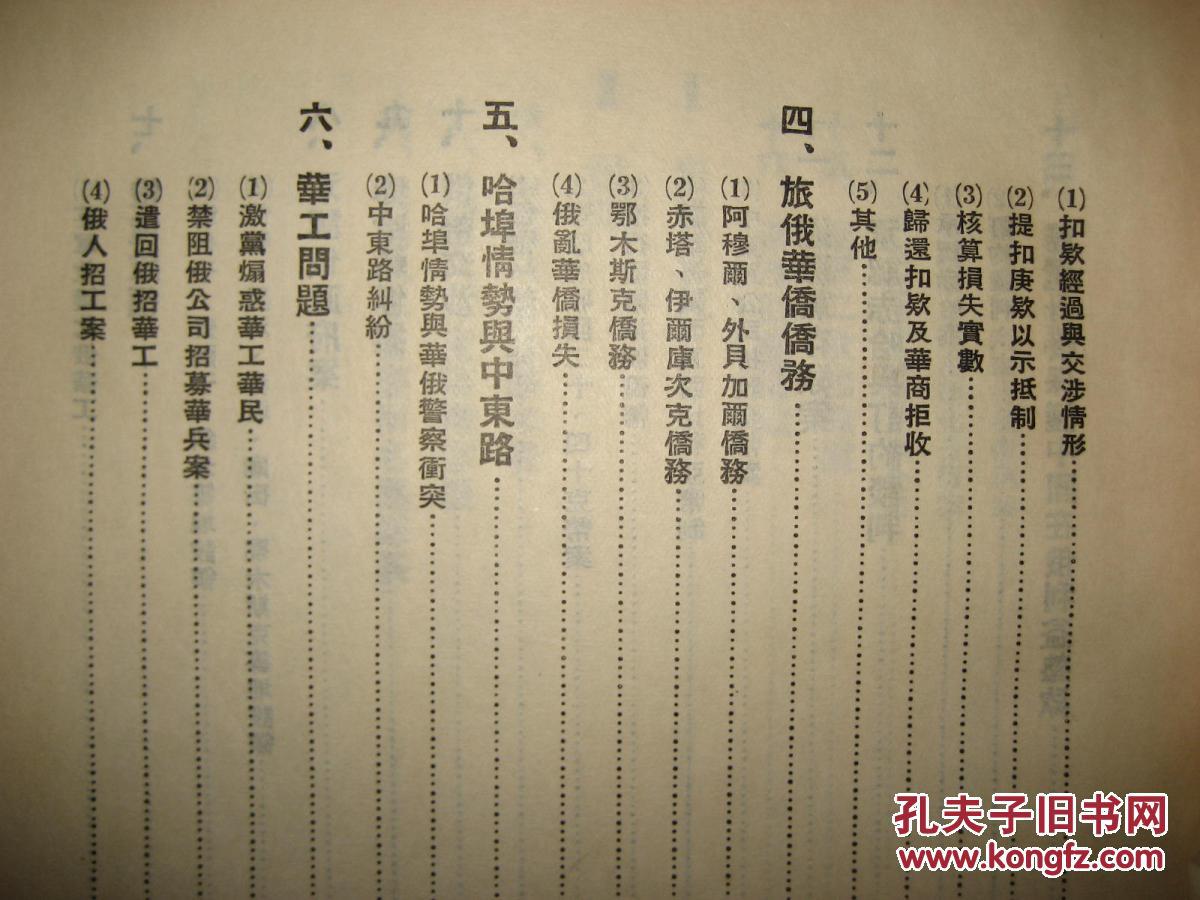 (1)扣欵經過與交涉情形
(2)提扣庚欵以示抵制
(3)核算損失實數
(4)歸還扣欵及華商拒收
(5)其他
四、旅俄華僑僑務
(1)阿穆爾、外貝加爾僑務
(2)赤塔、伊爾庫次克僑務
(3)鄂木斯克僑務
(4)俄亂華僑損失
五、哈埠情勢與中東路
(1)哈埠情勢與華俄警察衝突
(2)中東路糾紛
六、華工問題
(1)激黨煽惑華工華民
(2)禁阻俄公司招募華兵案
(3)遣回俄招華工
(4)俄人招工案
孔夫子旧书网
www.kongfz.com